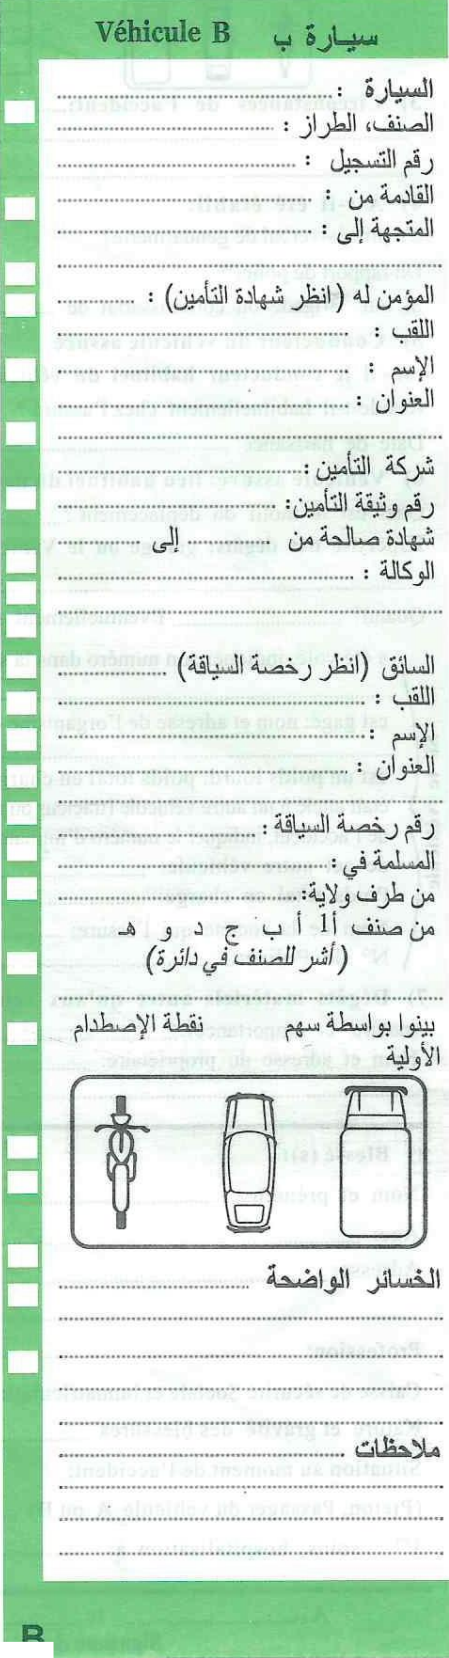 Véhicule B سيارة ب
السيارة :
الصنف، الطراز :
رقم التسجيل :
القادمة من :
المتجهة إلى :
المؤمن له (انظر شهادة التأمين) :
اللقب :
الإسم :
العنوان :
شركة التأمين :
رقم وثيقة التأمين:
شهادة صالحة من إلى
الوكالة :
السائق (انظر رخصة السياقة)
اللقب :
الإسم :
العنوان :
رقم رخصة السياقة :
المسلمة في :
من طرف ولاية:
من صنف أ1 أ ب ج د و هـ
(أشر للصنف في دائرة)
بينوا بواسطة سهم نقطة الإصطدام
الأولية
الخسائر الواضحة
ملاحظات
B